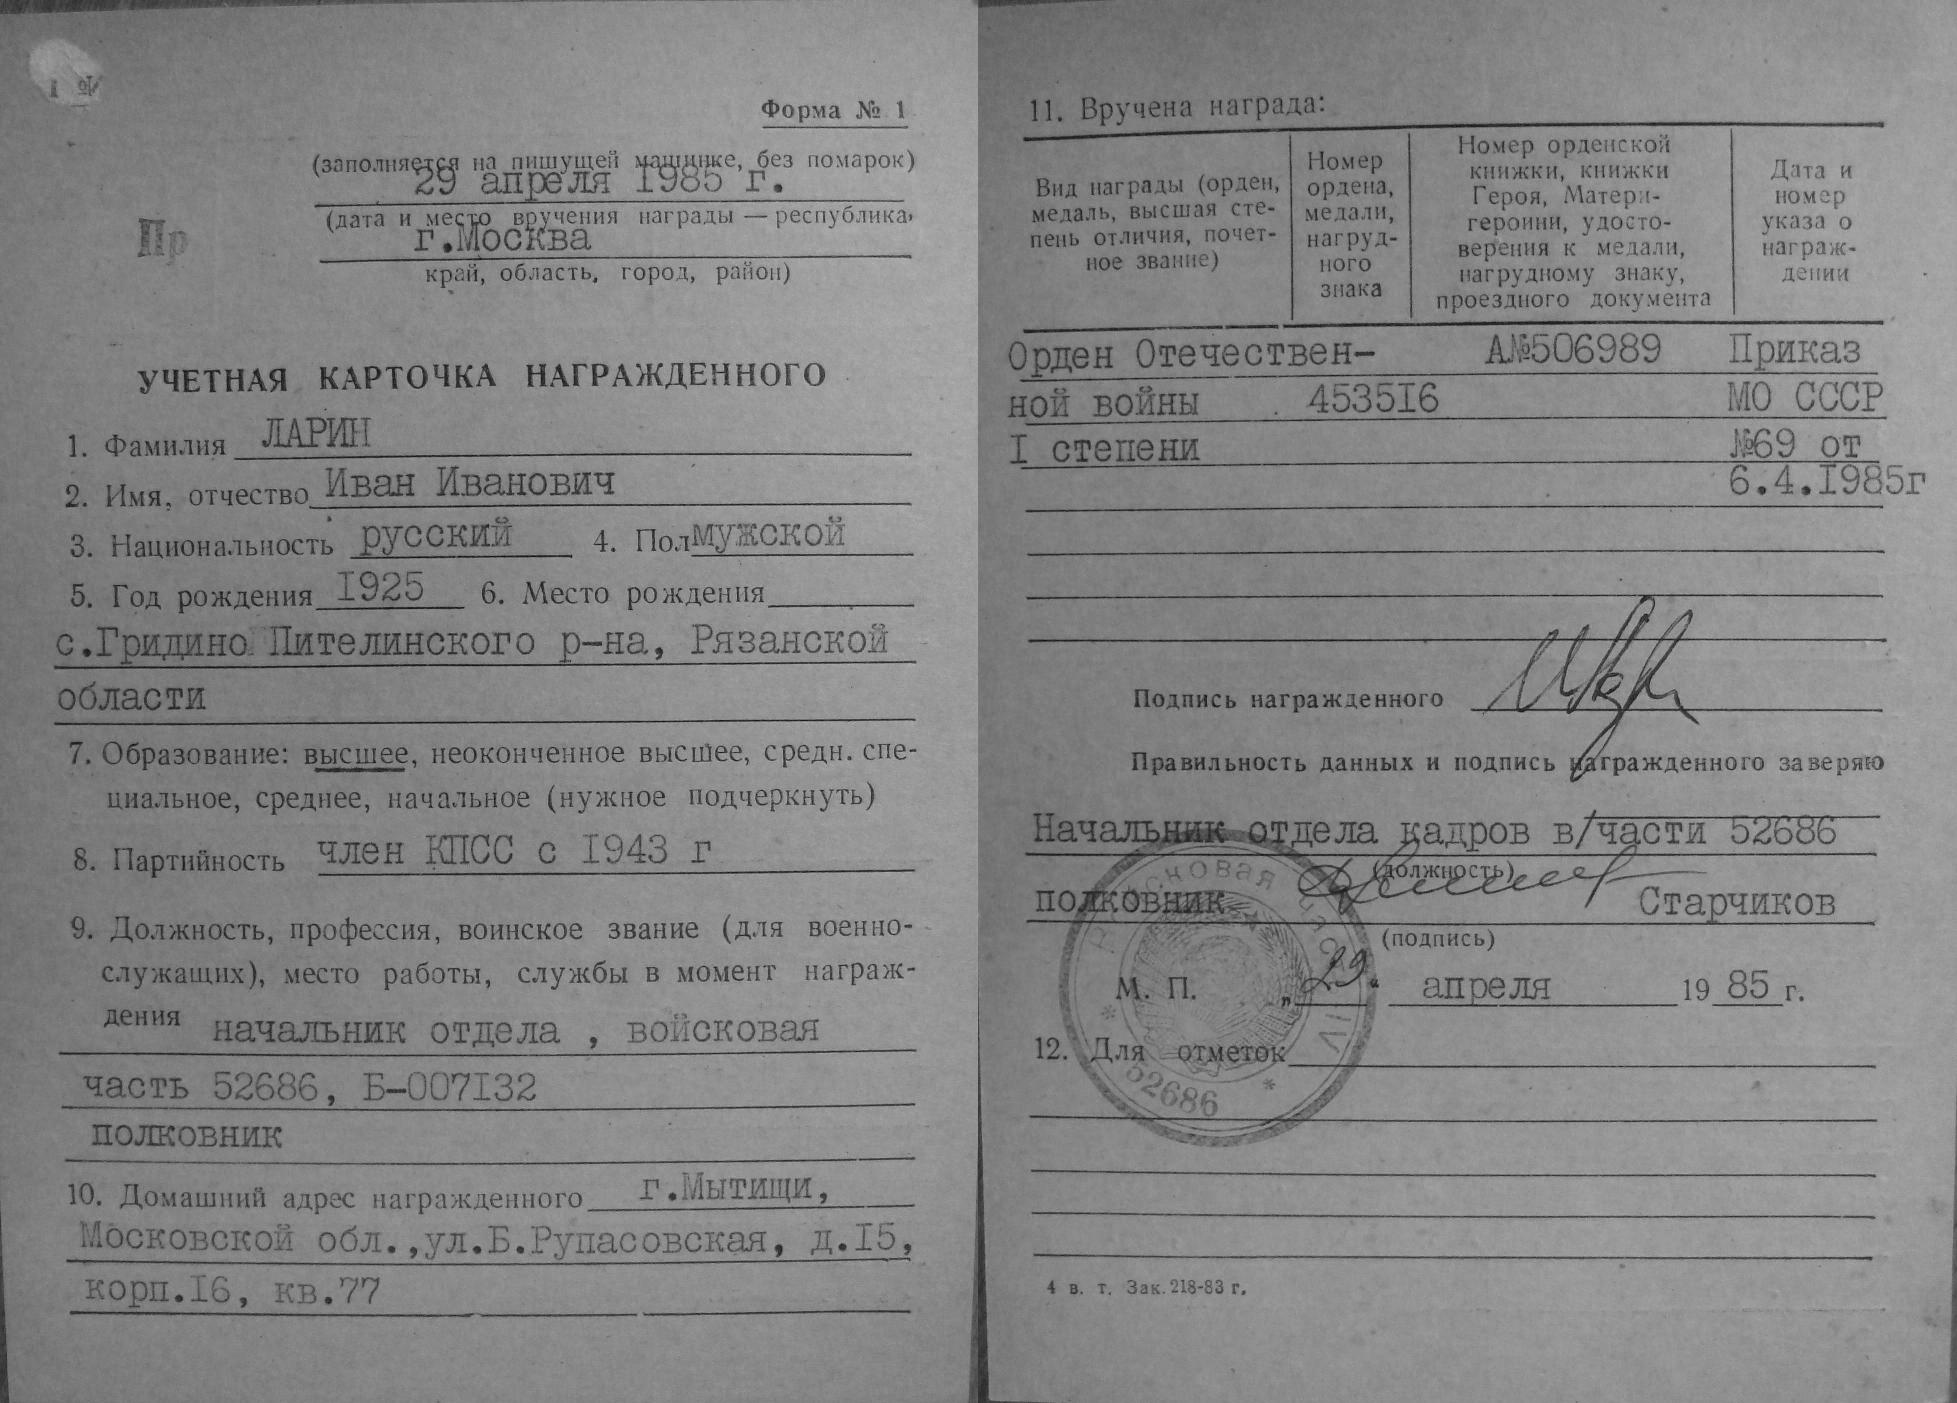 Форма № 1
(заполняется на пишущей машинке, без помарок)
29 апреля 1985 г.
(дата и место вручения награды — республика,
Пр
г.Москва
край, область, город, район)
УЧЕТНАЯ КАРТОЧКА НАГРАЖДЕННОГО
1. Фамилия ЛАРИН
2. Имя, отчество Иван Иванович
3. Национальность русский 4. Пол мужской
5. Год рождения 1925 6. Место рождения
с.Гридино Пителинского р-на, Рязанской
области
7. Образование: высшее, неоконченное высшее, средн. спе-
циальное, среднее, начальное (нужное подчеркнуть)
8. Партийность член КПСС с 1943 г
9. Должность, профессия, воинское звание (для военно-
служащих), место работы, службы в момент награж-
дения начальник отдела , войсковая
часть 52686, Б-007132
полковник
10. Домашний адрес награжденного г.Мытищи,
Московской обл.,ул.Б.Рупасовская, д.15,
корп.16, кв.77
11. Вручена награда:
Вид награды (орден, медаль, высшая сте-
пень отличия, почет-
ное звание)
Номер
ордена,
медали,
нагруд-
ного
знака
Номер орденской
книжки, книжки
Героя, Матери-
героини, удосто-
верения к медали,
нагрудному знаку,
проездного документа
Дата и
номер
указа о
награж-
дении
Орден Отечествен- А№506989 Приказ
ной войны 453516 МО СССР
I степени №69 от
6.4.1985г
Подпись награжденного
Правильность данных и подпись награжденного заверяю
Начальник отдела кадров в/части 52686
(должность)
полковник Старчиков
(подпись)
М. П. „29“ апреля 1985 г.
Войсковая часть
52686
12. Для отметок
4 в. т. Зак. 218-83 г.